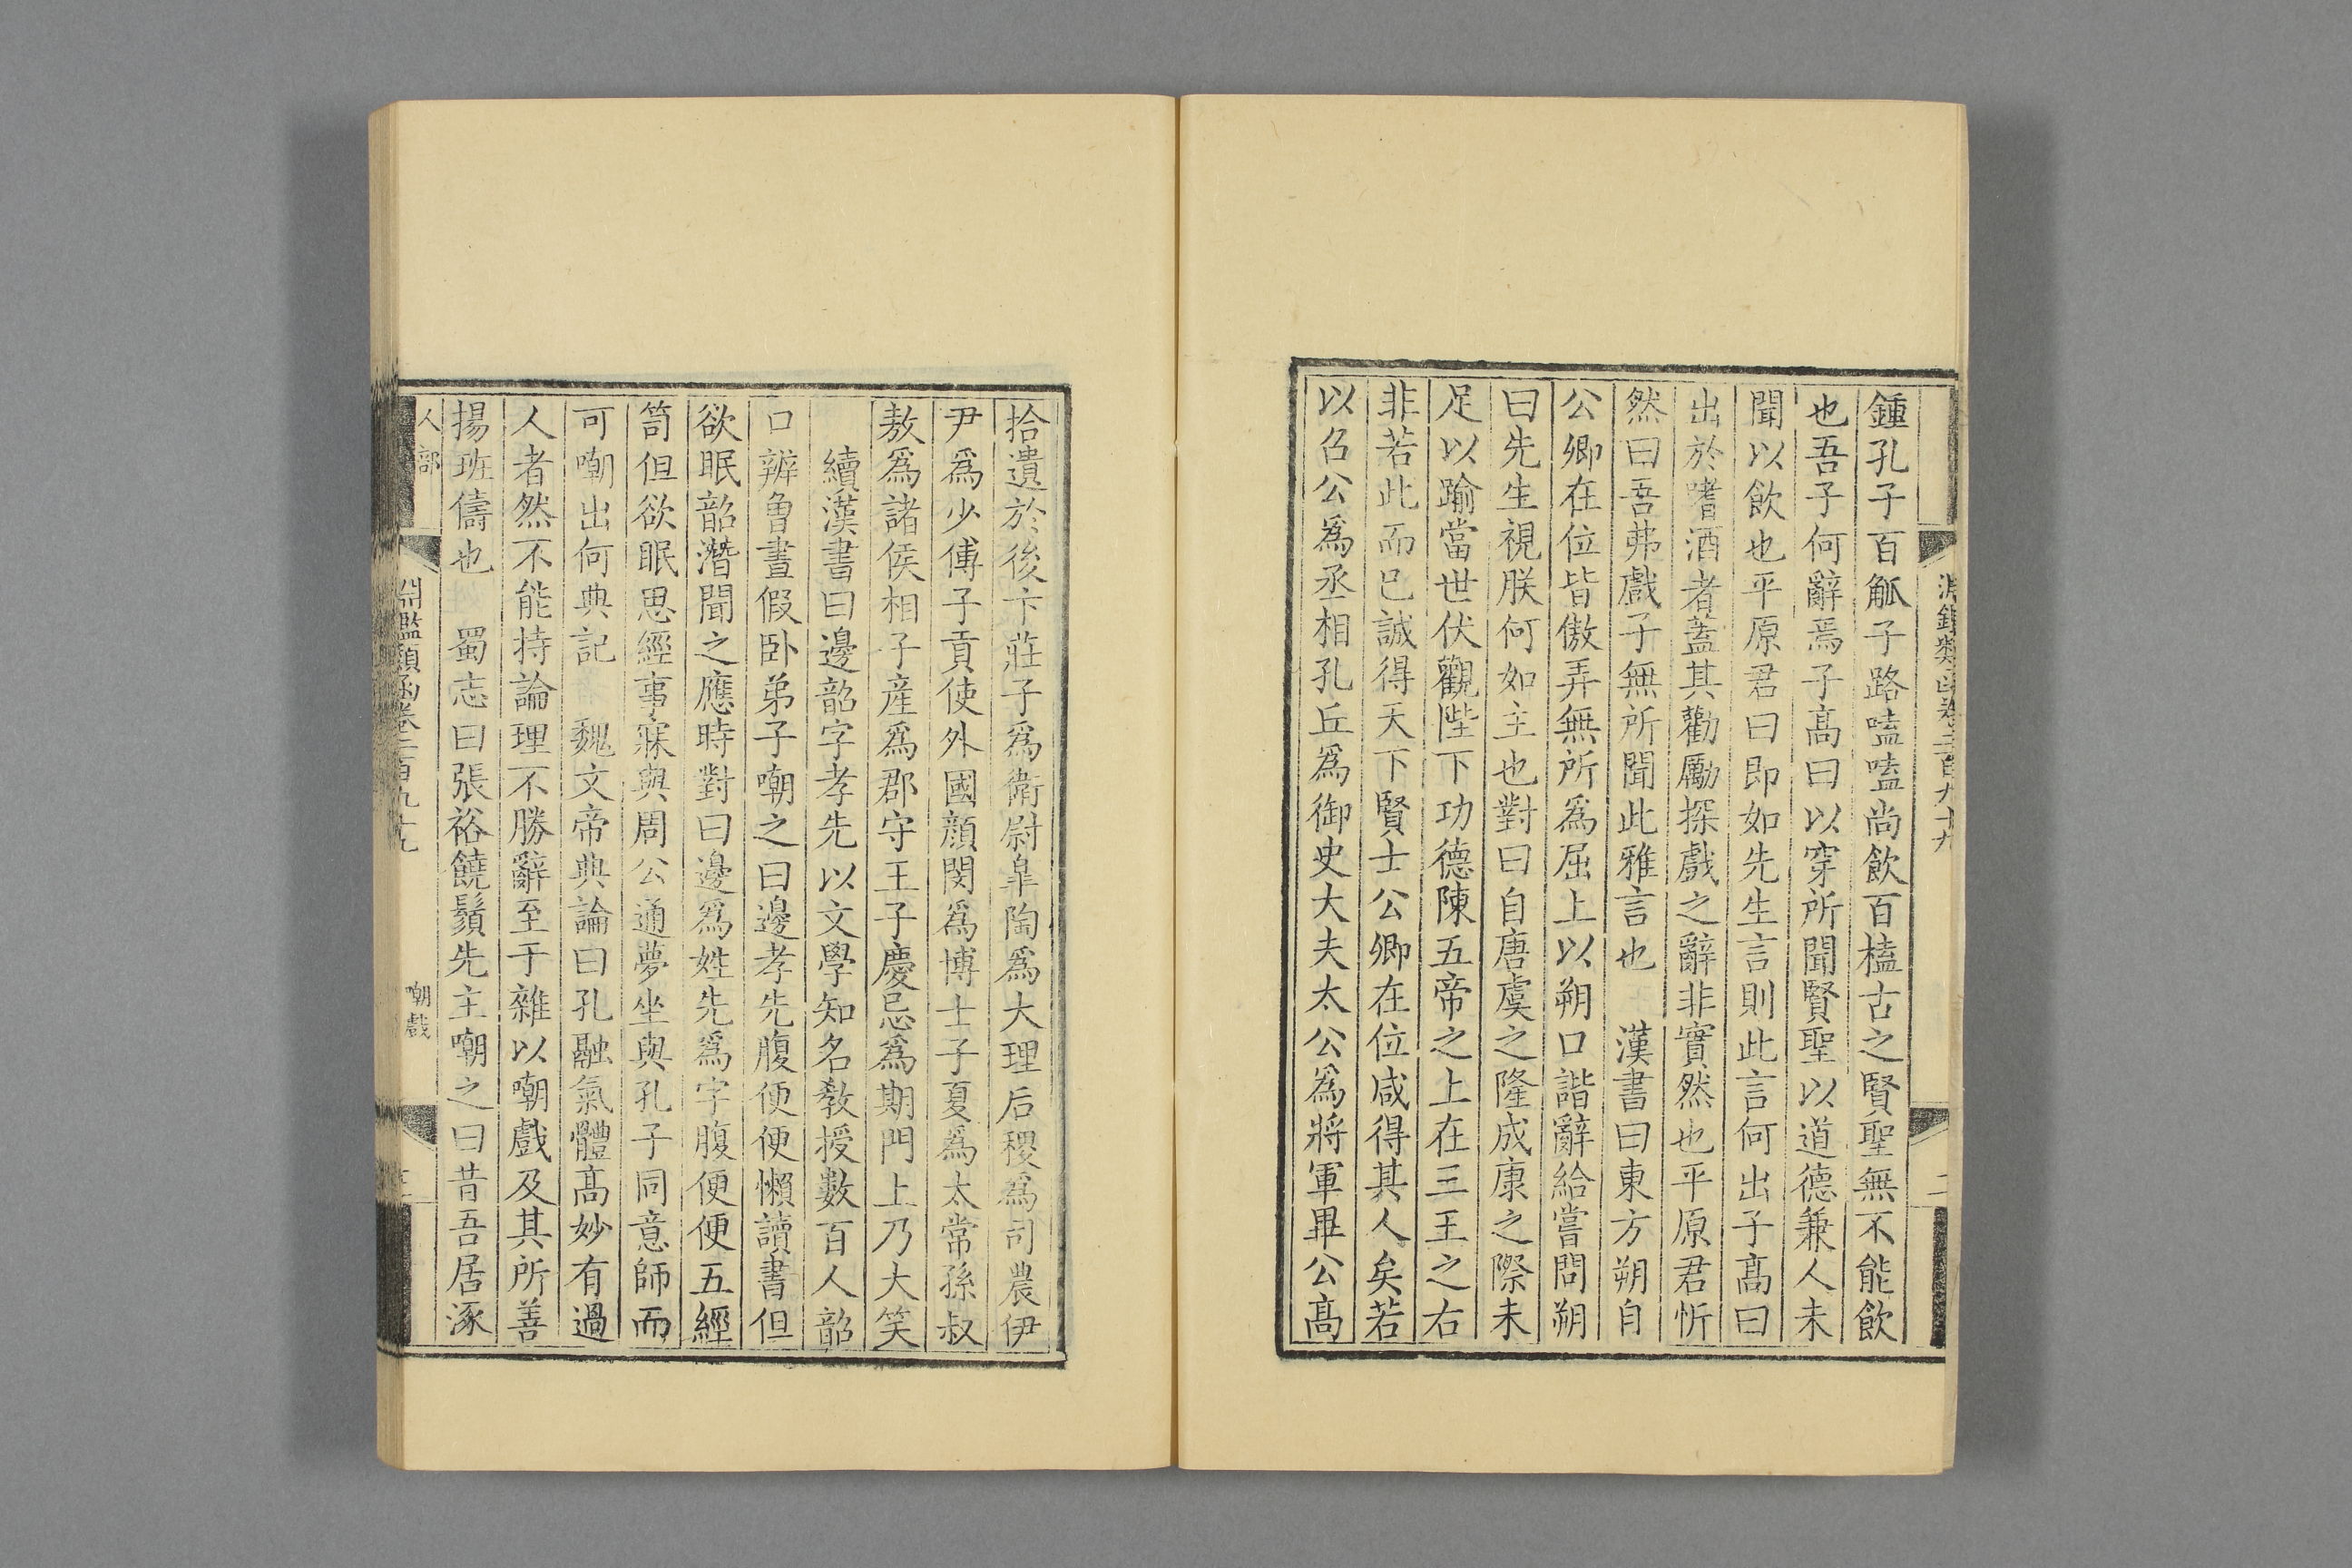 鍾孔子百觚子路嗑嗑尚飲百榼古之賢聖無不能飲
也吾子何辭焉子高曰以穿所聞賢聖以道德兼人未
聞以飲也平原君曰即如先生言則此言何出子高曰
出於嗜酒者蓋其勸勵探戲之辭非實然也平原君忻
然曰吾弗戲子無所聞此雅言也 漢書曰東方朔自
公卿在位皆傲弄無所為屈上以朔口諧辭給嘗問朔
曰先生視朕何如主也對曰自唐虞之隆成康之際未
足以踰當世伏觀陛下功德陳五帝之上在三王之右
非若此而已誠得天下賢士公卿在位咸得其人矣若
以召公為丞相孔丘為御史大夫太公為將軍畢公高
拾遺於後卞莊子為衛尉皐陶為大理后稷為司農伊
尹為少傅子貢使外國顏閔為博士子夏為太常孫叔
敖為諸侯相子產為郡守王子慶忌為期門上乃大笑
續漢書曰邊韶字孝先以文學知名教授數百人韶
口辨曾晝假卧弟子嘲之曰邊孝先腹便便懶讀書但
欲眠韶潛聞之應時對曰邊為姓先為字腹便便五經
笥但欲眠思經事寐與周公通夢坐與孔子同意師而
可嘲出何典記 魏文帝典論曰孔融氣體高妙有過
人者然不能持論理不勝辭至于雜以嘲戲及其所善
揚班儔也 蜀志曰張裕饒鬚先主嘲之曰昔吾居涿
人部 淵鑑類函卷二百九十九 嘲戲